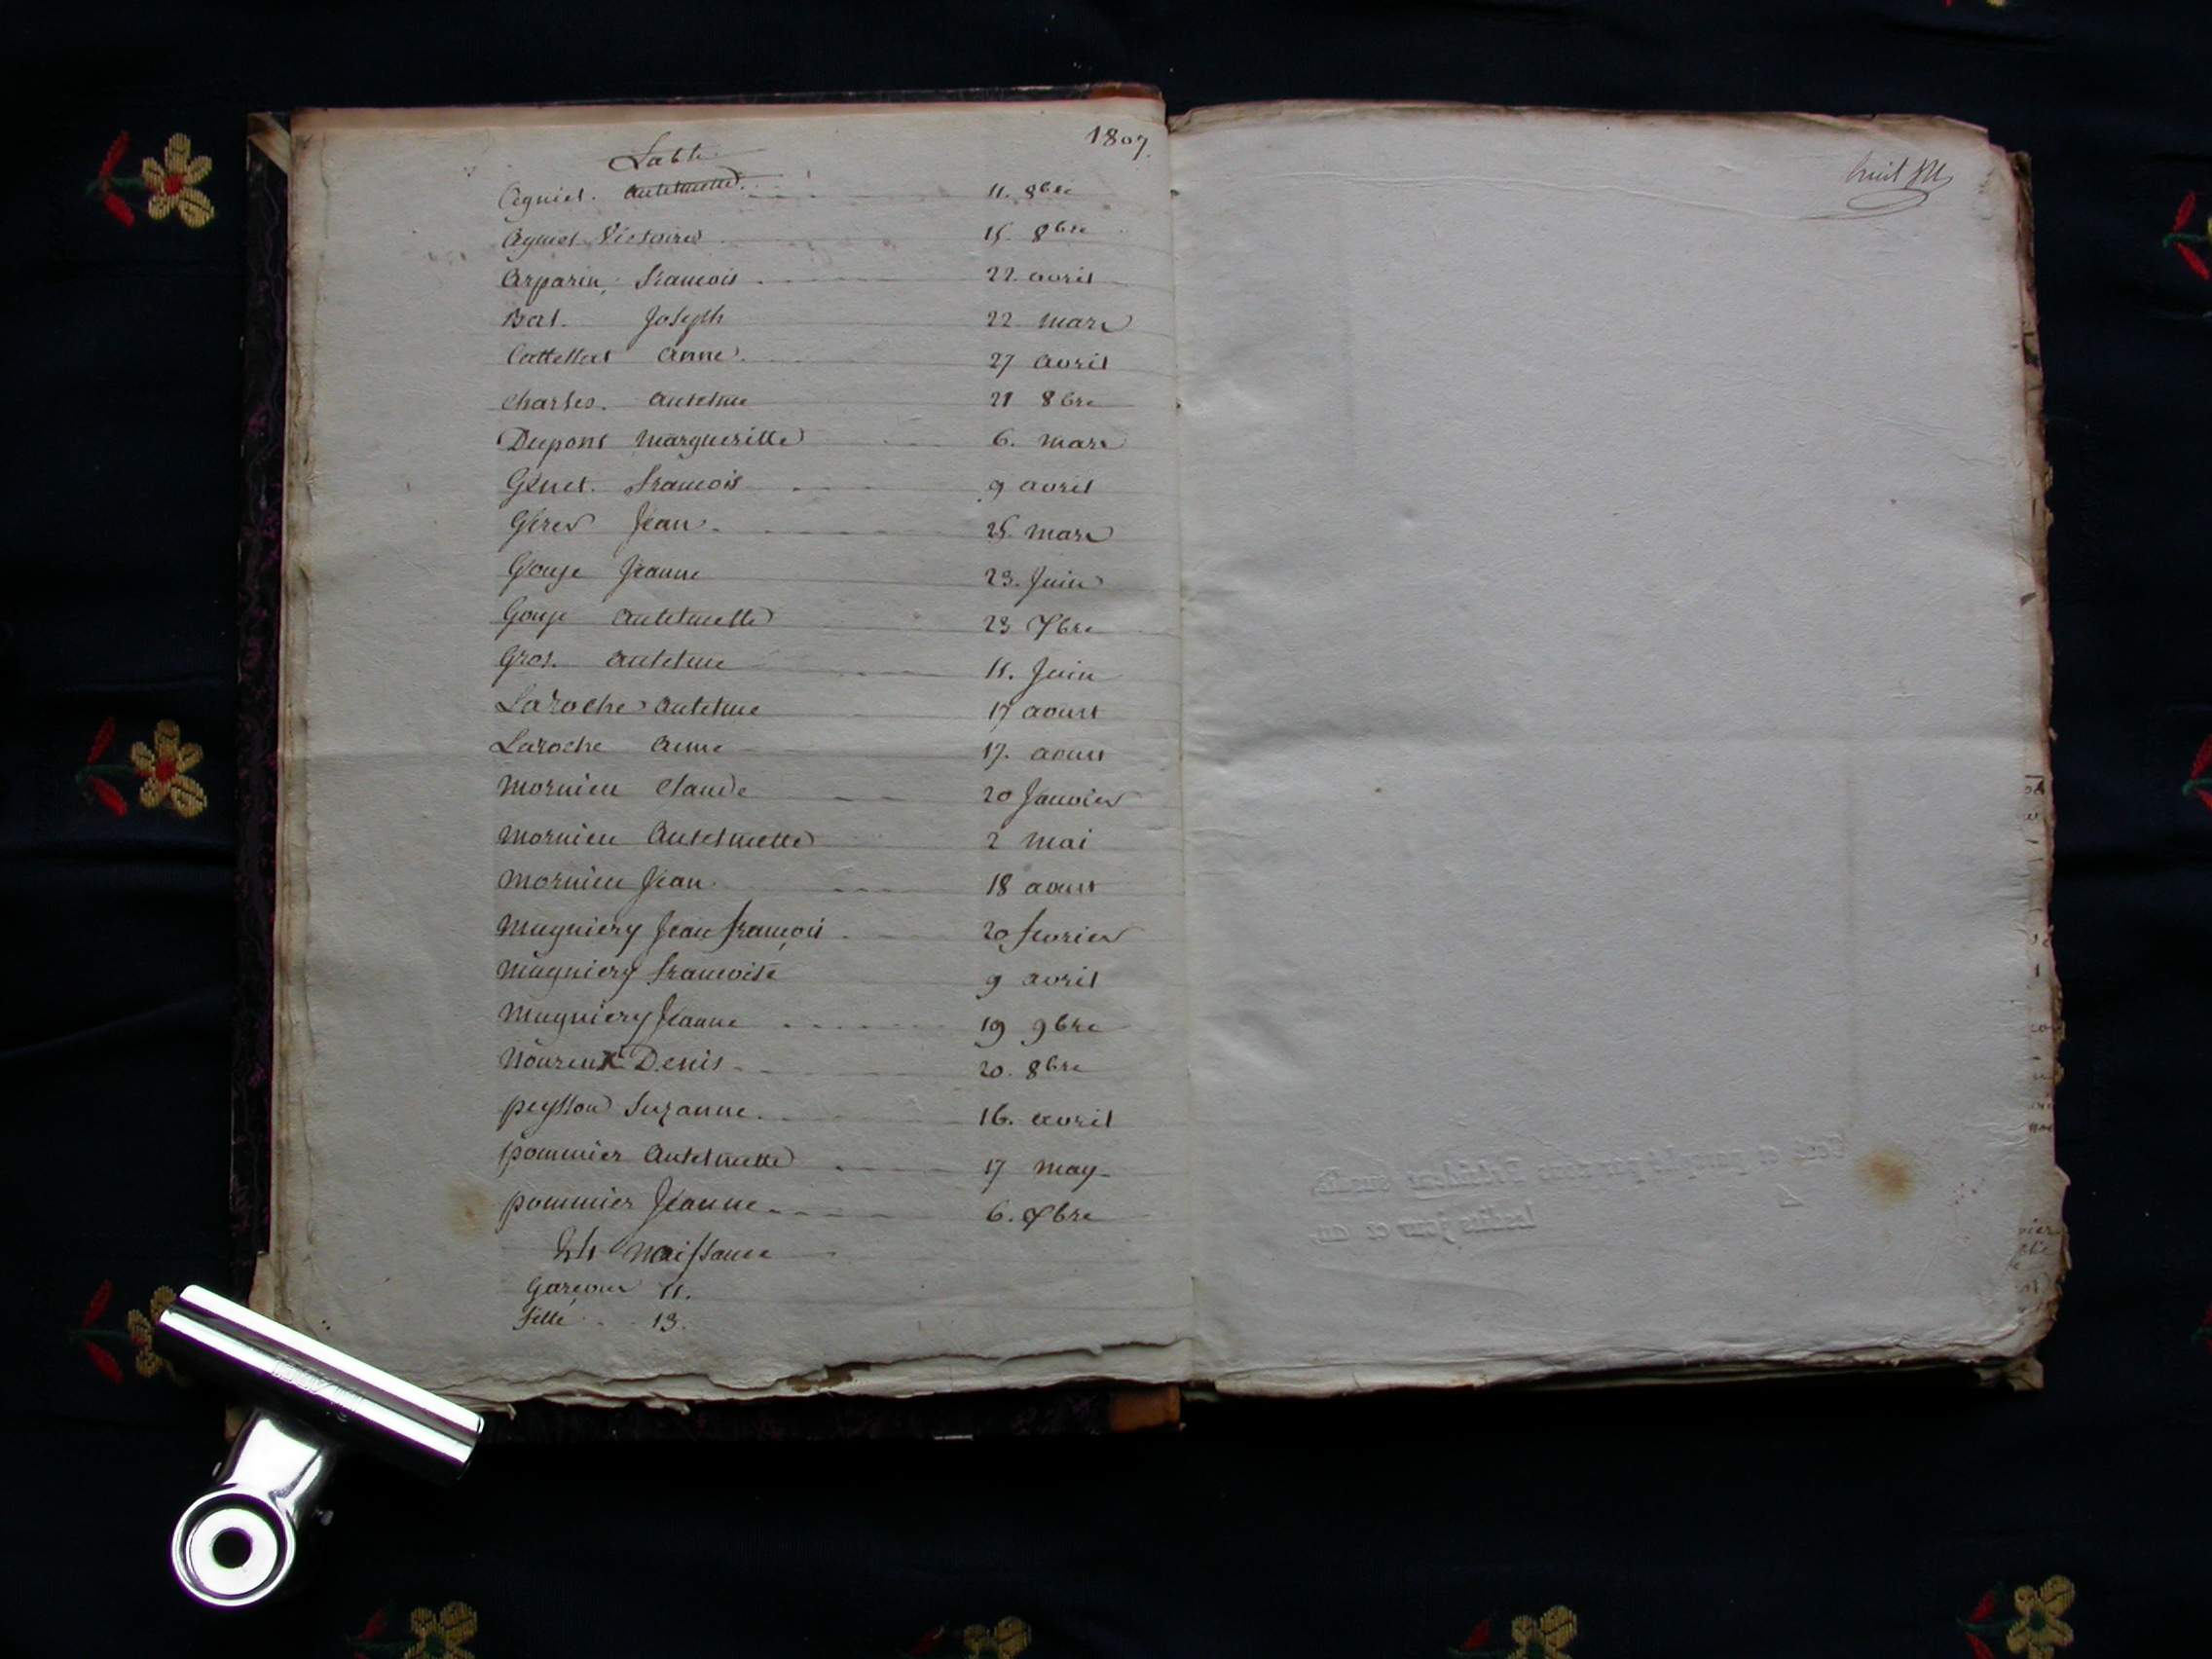 1807.
Table
Agniel. Antelmette. 11. 8bre
Agniel Victoire 15. 8bre
Arparin, francois 22. avril
Bal. Joseph 22 mars
Cattellat anne. 27 avril
Charles. antelme 21 8bre
Dupont margueritte 6. mars
Genet. francois 9 avril
Jean. 25. mars
Gouje Jeanne 23. Juin
Gouje antelmette 23 7bre
Gros. antelme 11. Juin
Laroche antelme 17 aoust
Laroche anne 17. aoust
mornieu Claude 20 Janvier
mornieu Antelmette 2 mai
mornieu Jean 18 aoust
mugniery Jean françois 20 fevrier
mugniery francoise 9 avril
mugniery Jeanne 19 9bre
Noureux Denis 20. 8bre
peysson Suzanne. 16. avril
pommier Antelmette 17 may
pommier Jeanne 6. 7bre
24 naissance
Garcons 11.
fille 13.
huit